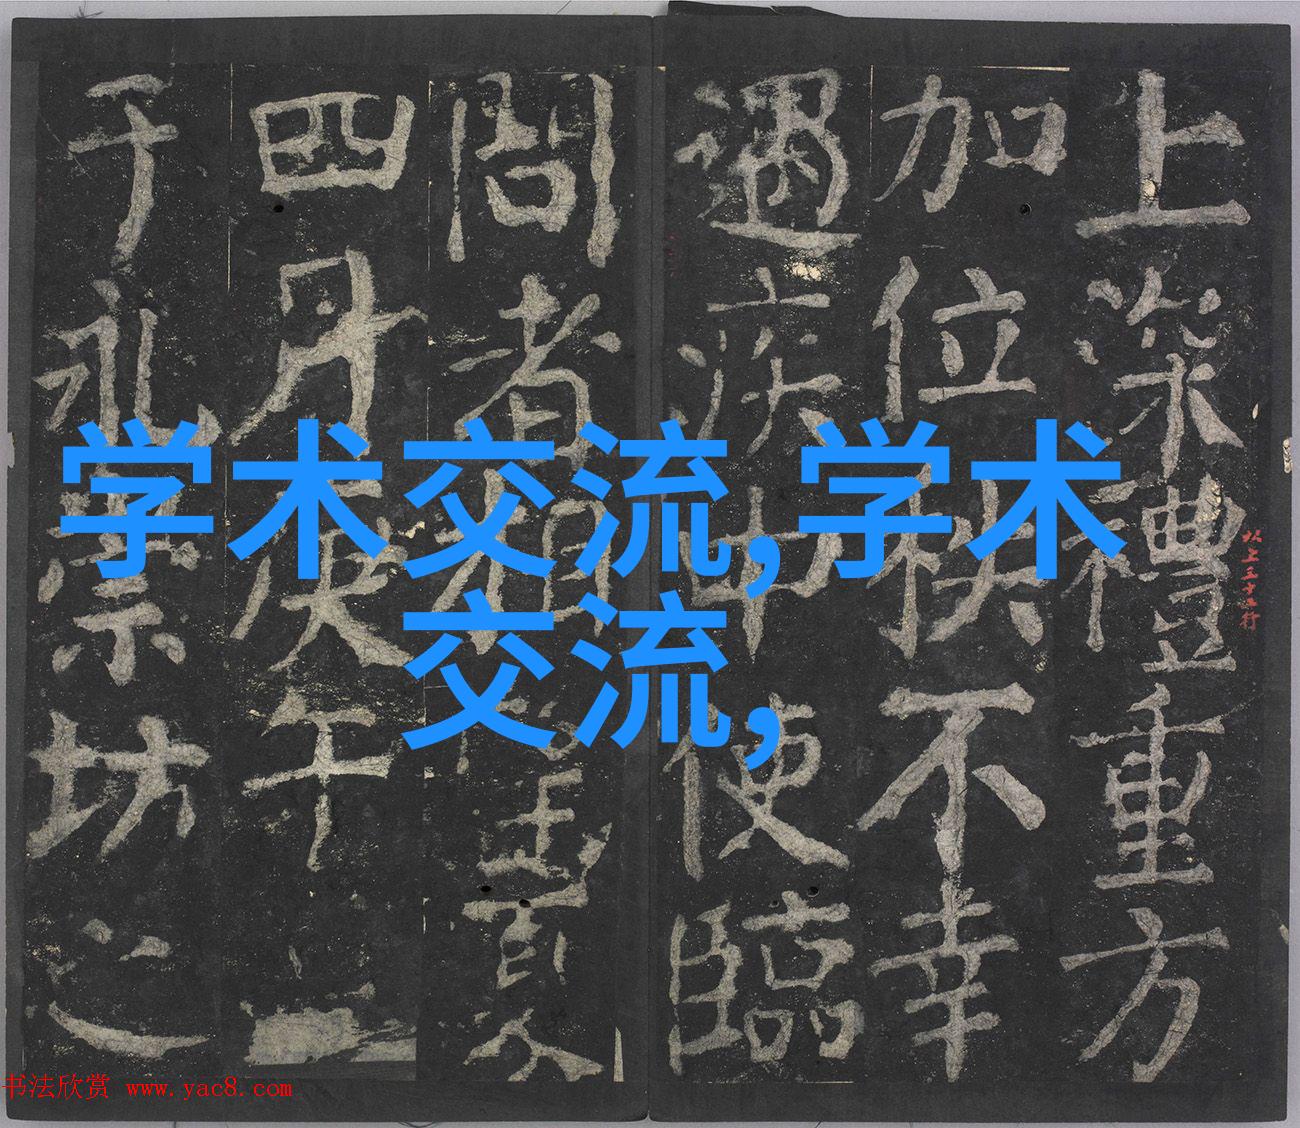 上策禮重方
加位秩不幸
遇疾中使臨
問者相望夏
四月庚午
于永崇坊之
学术交流,学术
交流,
书法欣赏 www.yac8.com